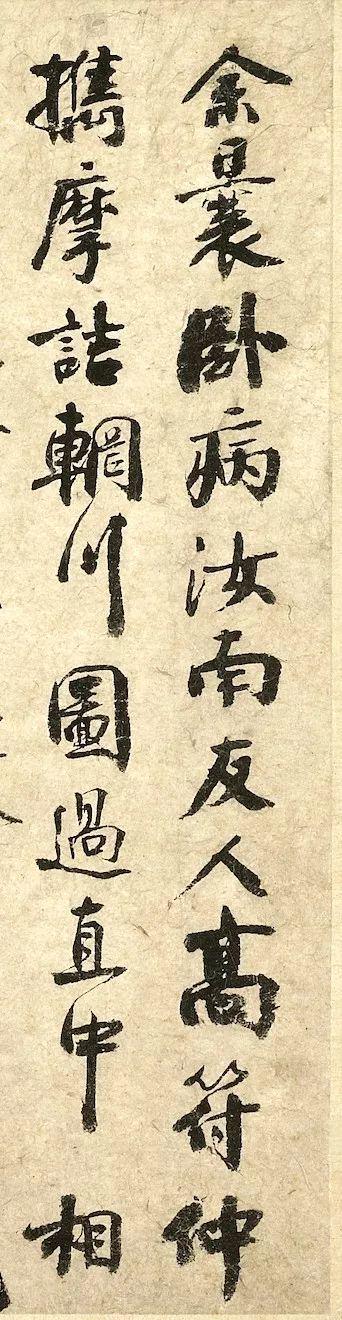 余曩卧病汝南友人高符仲
攜摩詰輞川圖過直中相